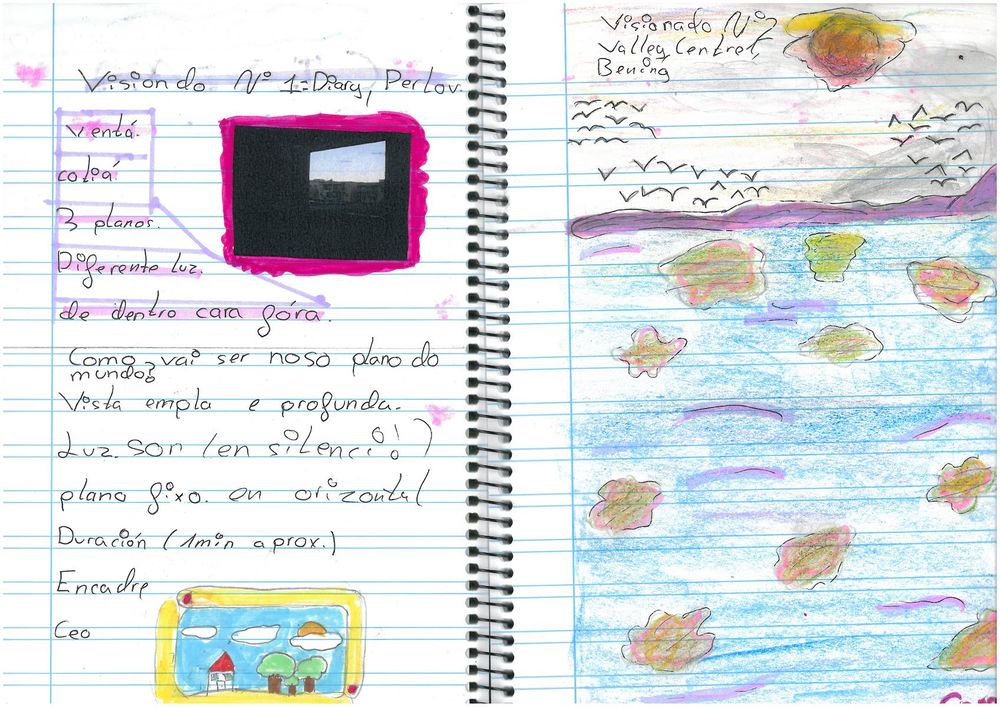 Visiondo Nº 1: Diary, Perlov.
Ventá.
cotiá
3 planos.
Diferente luz.
de dentro cara fóra.
Como vai ser noso plano do
mundo?
Vista empla e profunda.
Luz. son (en silenci!)
plano fixo. en orizontal
Duración (1min aprox.)
Encadre
Ceo
Visionado Nº2
Valley Centret,
Bening